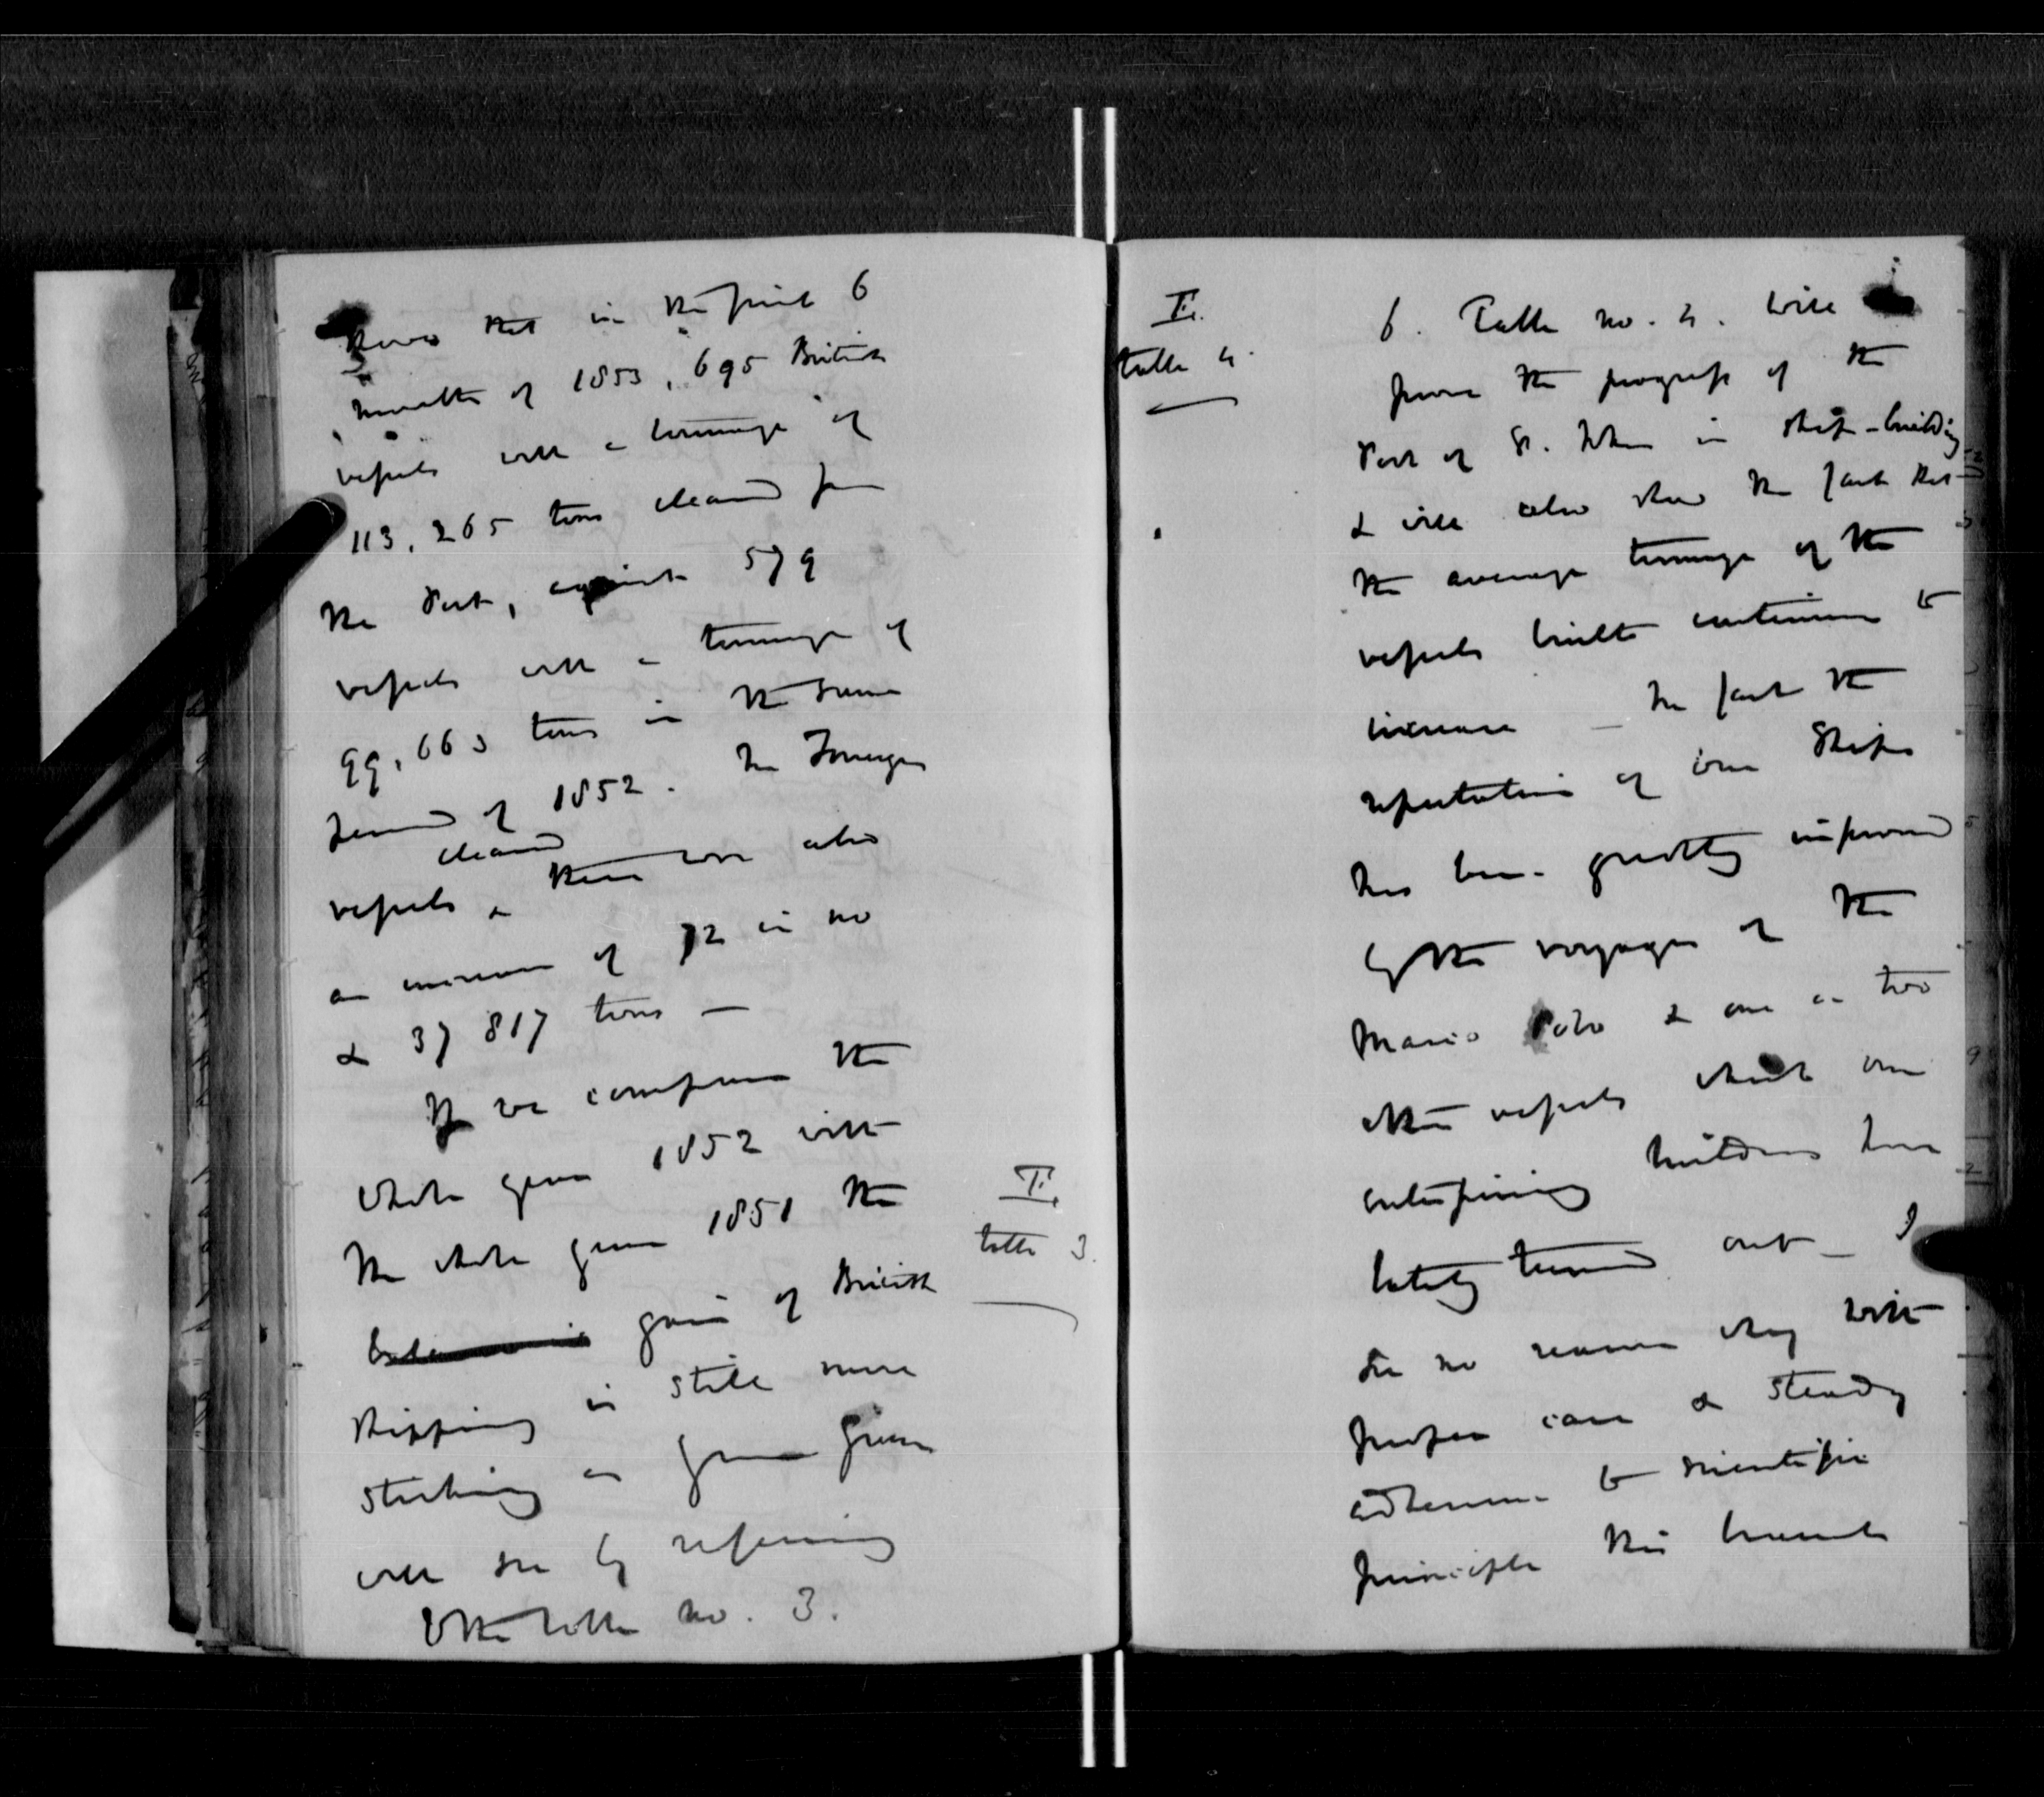 shows that in the first 6
months of 1853, 695 British
vessels with a tonnage of
113,265 tons cleared from
the Port, against 579
vessels with a tonnage of
99,663 tons in the same
period of 1852. In Foreign
vessels cleared there was also
an increase of 72 in no
& 37 817 tons —
If we compare the
whole year 1852 with
the whole year 1851 the
gain of British
Shipping is still more
striking as your
will see by referring
to the table no. 3.
T.
table 3.
T.
table 4.
6. Table no. 4. will
prove the progress of the
Port of St. John in ship-building
& will also show the fact that
the average tonnage of the
vessels built continues to
increase — In fact the
reputation of our Ships
has been greatly improved
by the voyages of the
Marco Polo & one or two
other vessels which our
enterprising builders have
lately turned out — I
see no reason why with
proper care & steady
adherence to scientific
principle this branch